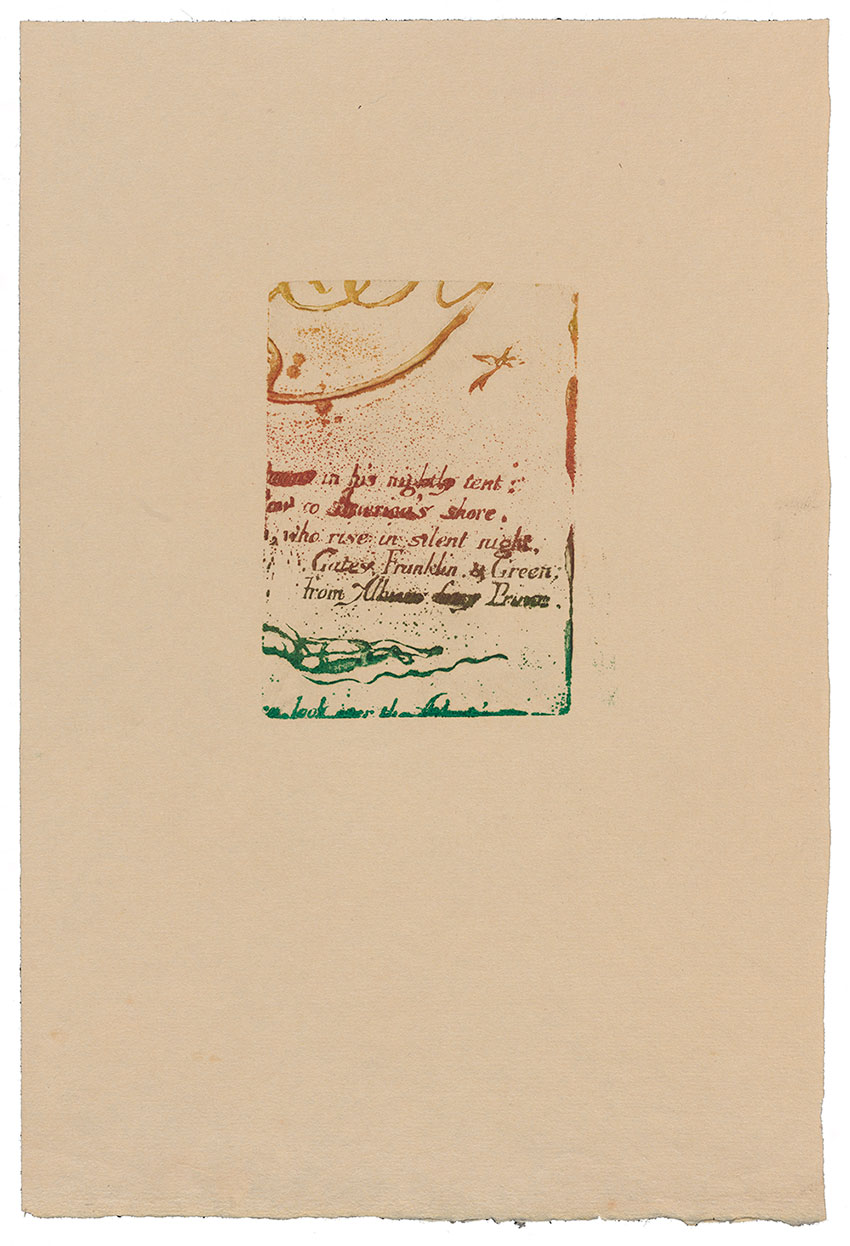 in his nightly tent:
to America's shore.
, who rise in silent night,
Gates, Franklin & Green;
from Albions fiery Prince.
look over the